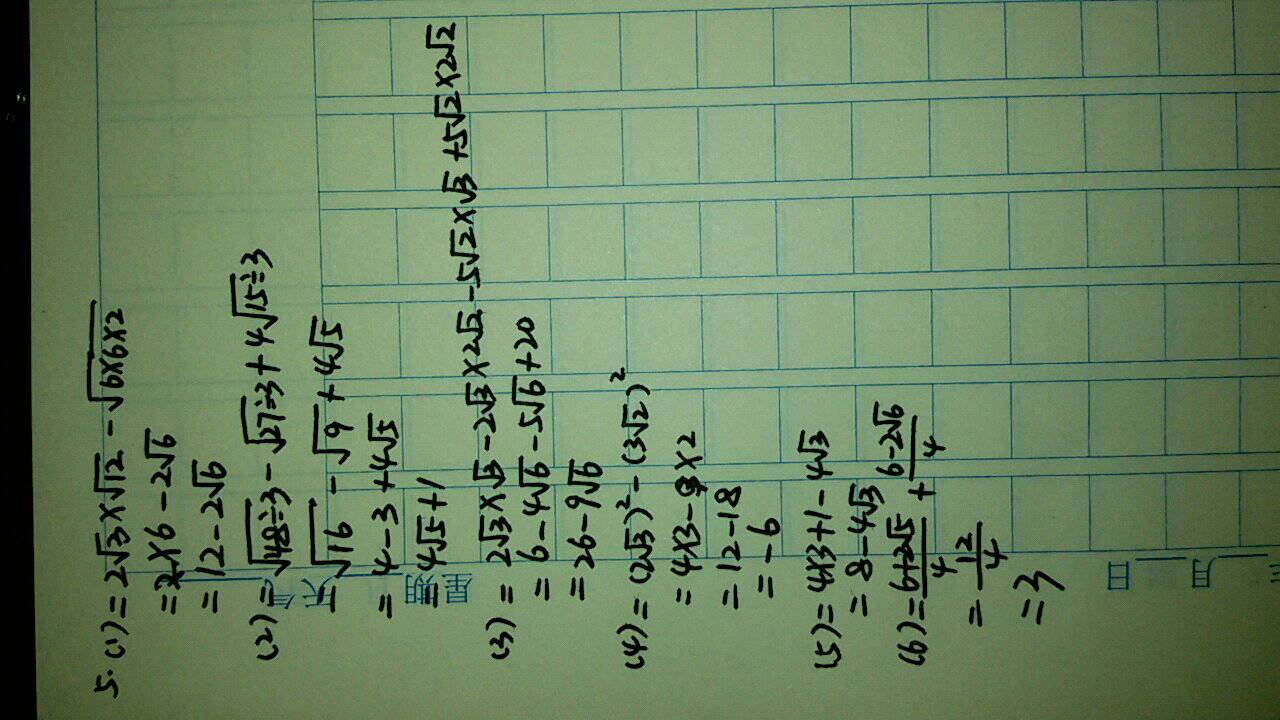 5. (1) = 2√3×√12 - √6×6×2
= 2×6 - 2√6
= 12 - 2√6
(2) = √48÷3 - √27÷3 + 4√15÷3
= √16 - √9 + 4√5
= 4 - 3 + 4√5
= 4√5 + 1
(3) = 2√3×√3 - 2√3×2√2 - 5√2×√3 + 5√2×2√2
= 6 - 4√6 - 5√6 + 20
= 26 - 9√6
(4) = (2√3)² - (3√2)²
= 4×3 - 9×2
= 12 - 18
= -6
(5) = 4×3 + 1 - 4√3
= 8 - 4√3
(6) = 6+2√5/4 + 6-2√6/4
= 12/4
= 3
天气
星期
日
月